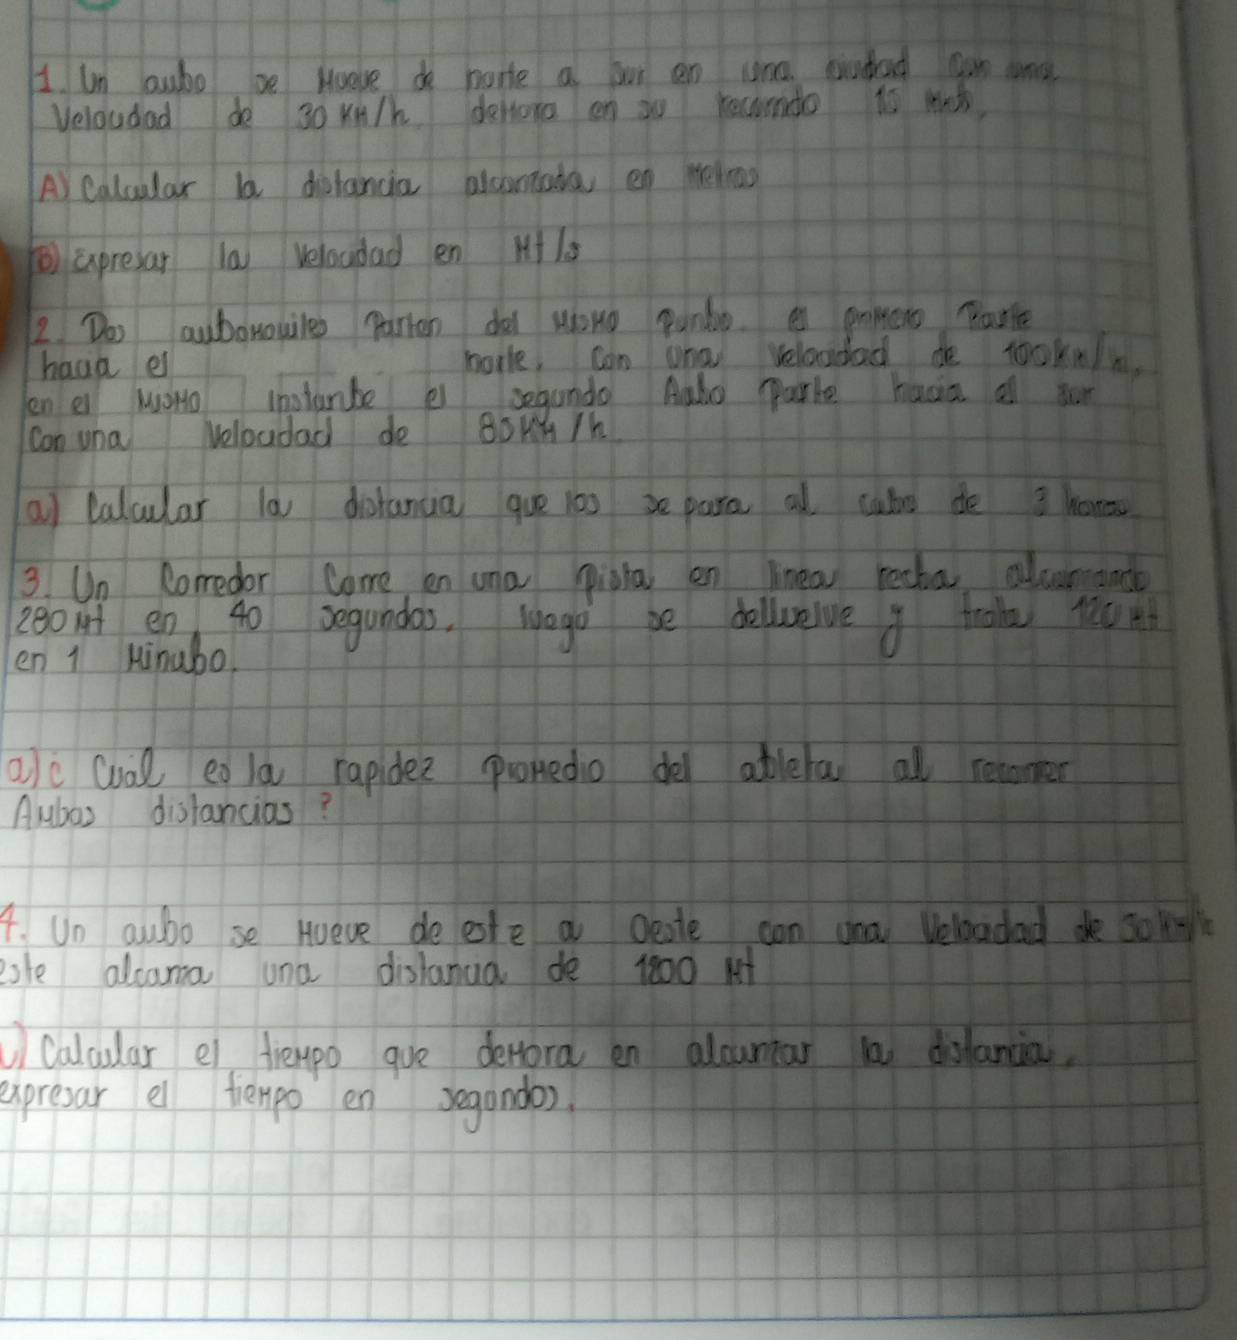 1. Un auto se Mueve de norte a sur en una ciudad con una
Velocidad de 30 KM/h. deMora en su recorrido
A) Calcular la distancia alcanzada en Metros
B) Expresar la Velocidad en Mt/s
2. Dos autoMoviles Parten del MisMo Punto. el priMero Parte
hacia el norte, Con una Velocidad de 100km/h,
en el MisMo instante el segundo Auto Parte hacia el sur
Con una Velocidad de 85KM/h
a) Calcular la distancia que los separa al cabo de 3 horas
3. Un Corredor Corre en una Pista en linea recta alcanzando
280 Mt en 40 segundos. luego se debuelve y trota 120 Mt
en 1 Minuto.
a) ¿ Cual es la rapidez ProMedio del atleta al recorrer
AMbas distancias ?
4. Un auto se Mueve de este a Oeste con una Velocidad de
este alcanza una distancia de 1800 Mt
Calcular el tieMpo que deMora en alcanzar la distancia.
expresar el tieMpo en segundos.